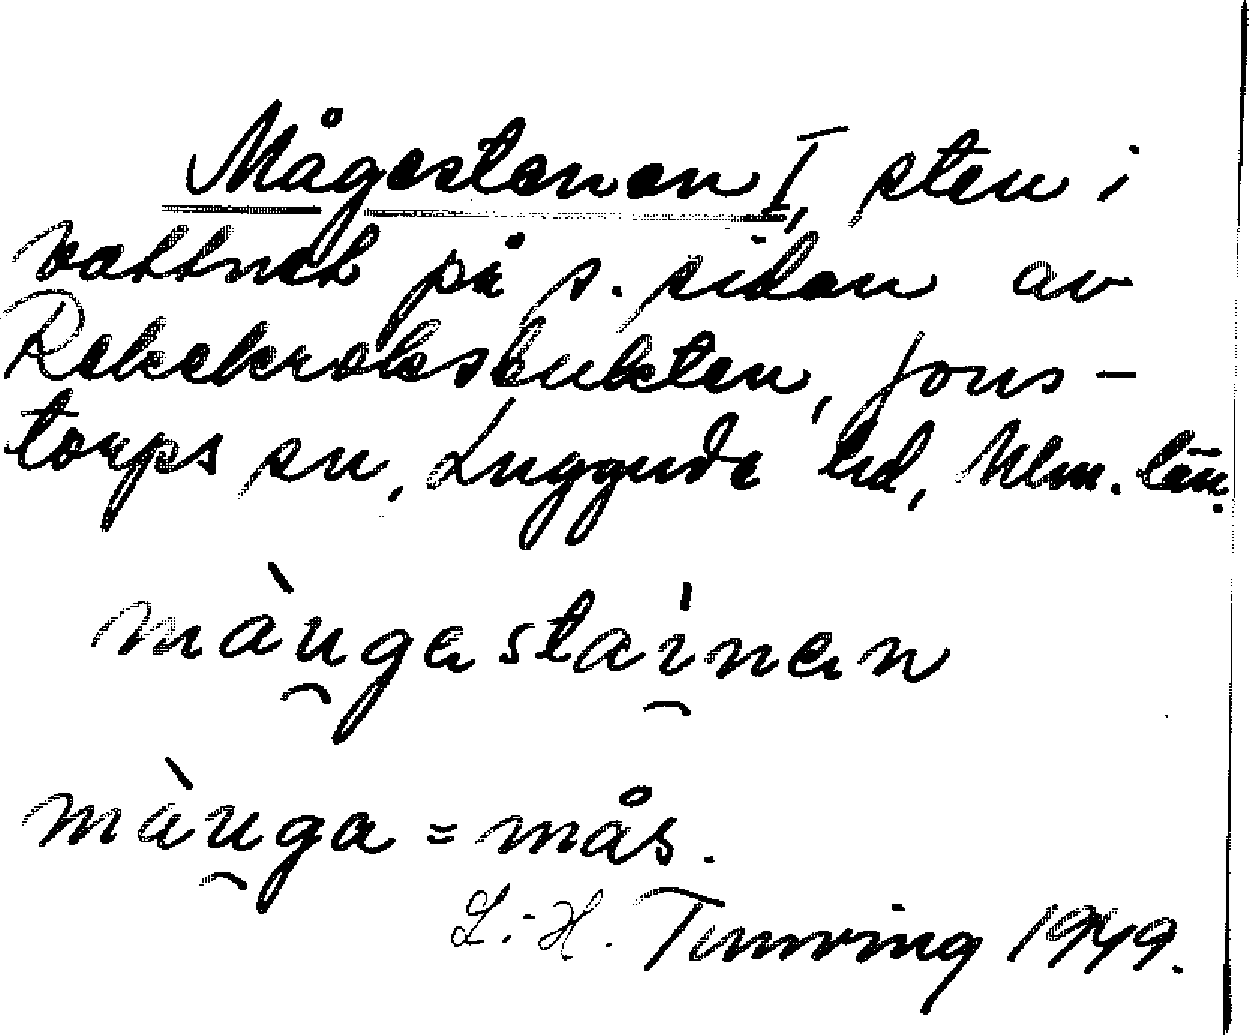 Mågestenen I, sten i
vattnet på s. sidan av
Rekekroksbukten, Jons-
torps sn, Luggude hd, Mlm. län.
màu̯gastai̯nen
màu̯ga = mås.
L.-H. Tunving 1949.